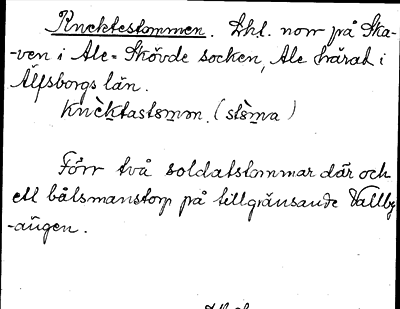 Knektestommen. Lhl. norr på Ska-
-ven i Ale-Skövde socken, Ale härad i
Älfsborgs län.
knèktasto̱mn. (stòma)
Förr två soldatstommar där och
ett båtsmanstorp på tillgränsande Vallby
-ängen.